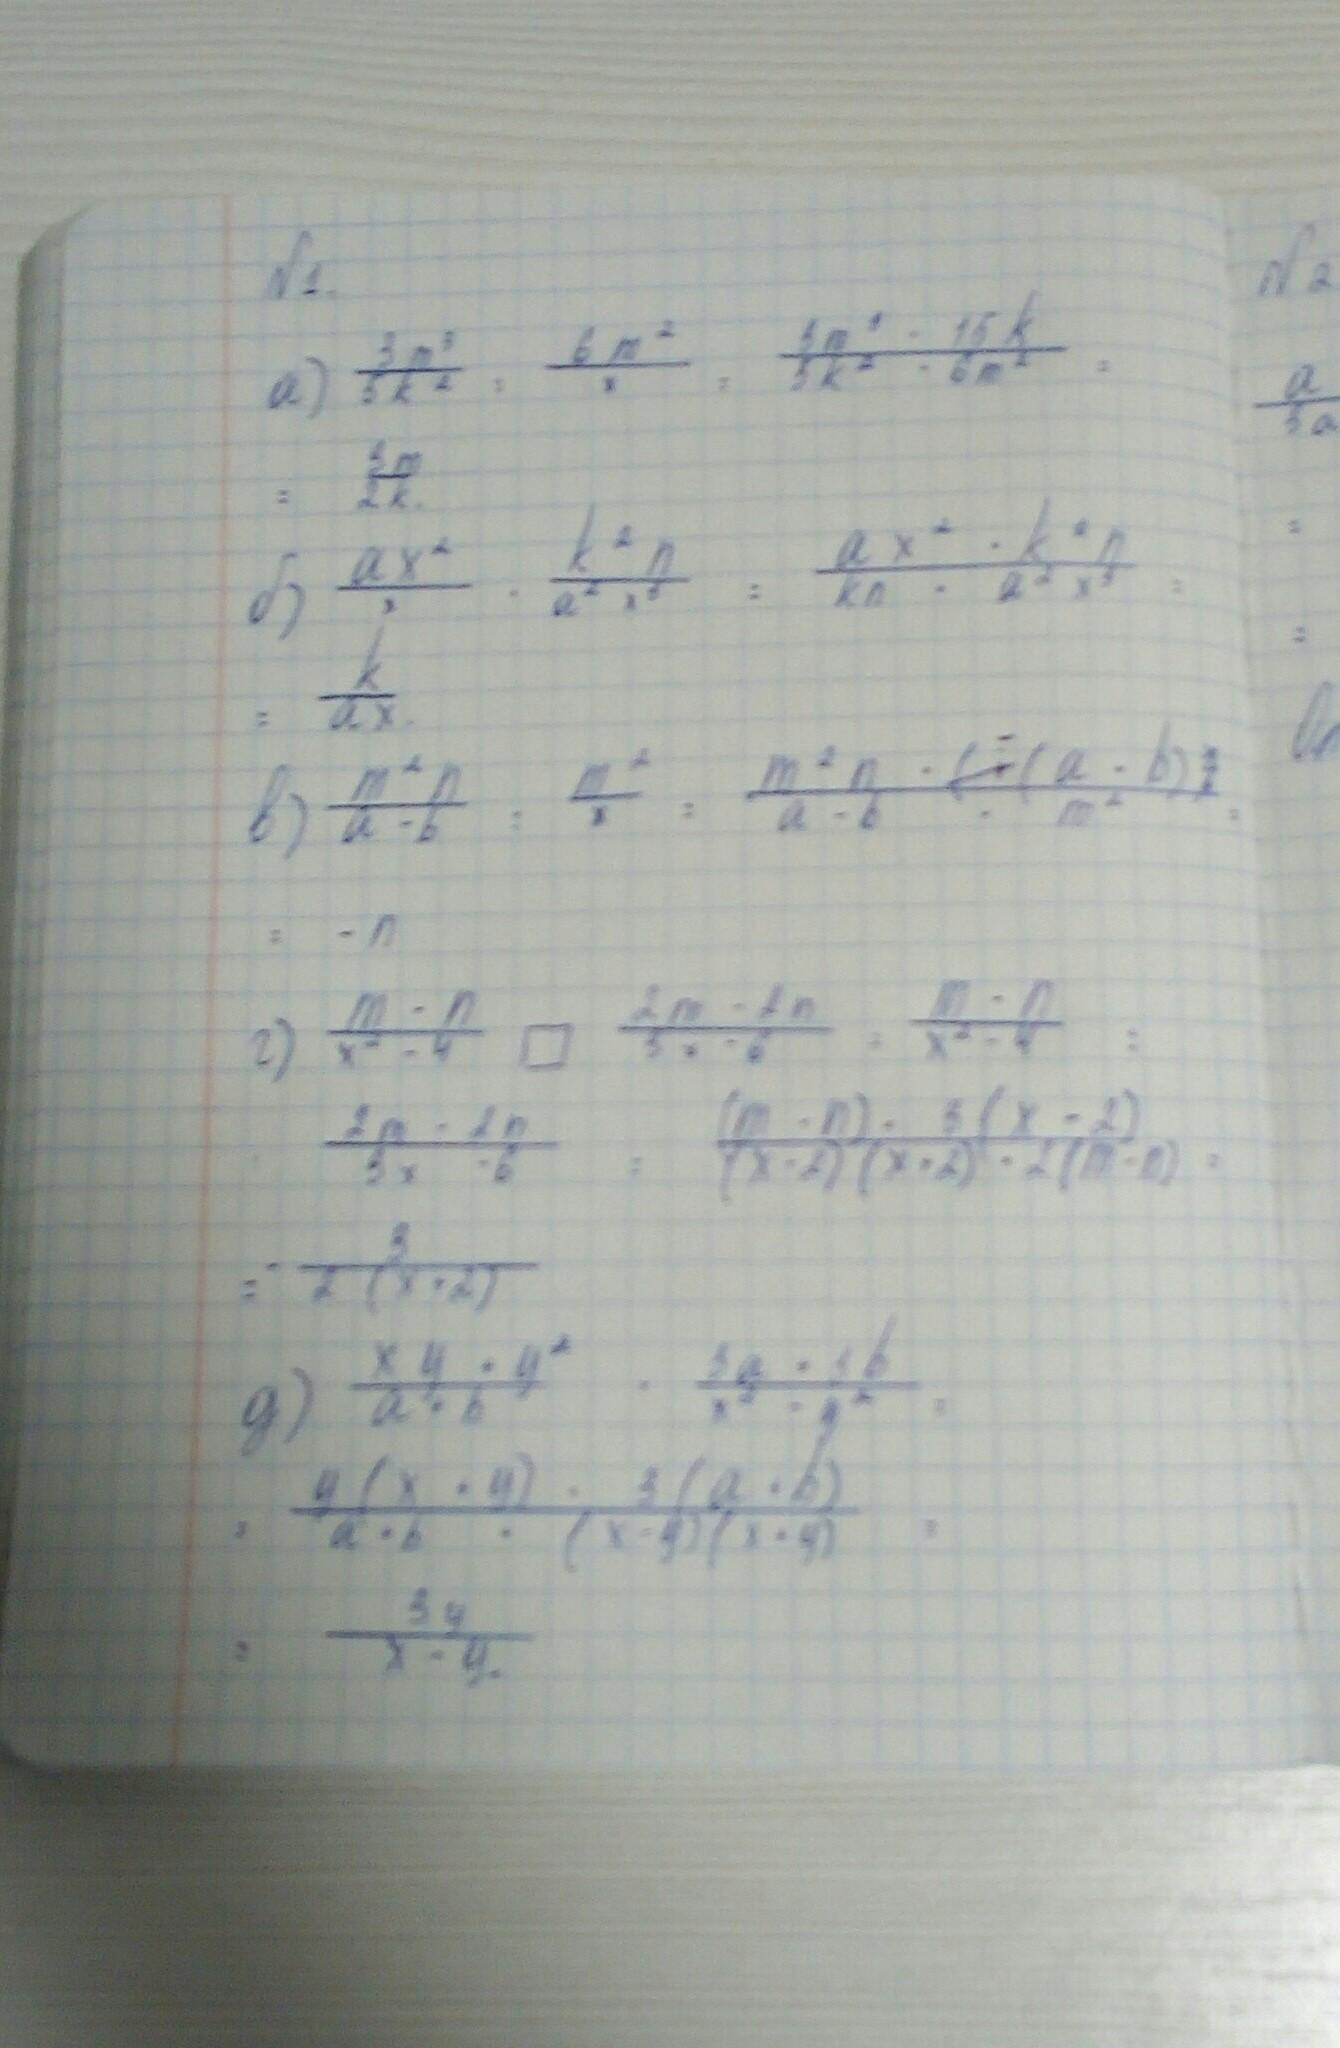 №1.
а) 3m³/5k² : 6m²/x = 3m³ · 15k / 5k² · 6m² =
= 3m/2k.
б) ax²/x · k²n/a²x³ = ax² · k²n / kn · a²x³ =
= k/ax.
в) m²n/a-b : m²/x = m²n · (-(a-b)) / a-b · m² =
= -n
г) m-n/x²-4 □ 2m-2n/3x-6 = m-n/x²-4 :
2m-2n/3x-6 = (m-n) · 3(x-2) / (x-2)(x+2) · 2(m-n) =
= 3/2(x+2)
д) xy+y²/a+b · 3a+3b/x²-y² =
= y(x+y) · 3(a+b) / a+b · (x-y)(x+y) =
= 3y/x-y.
№2
a/3a
=
=